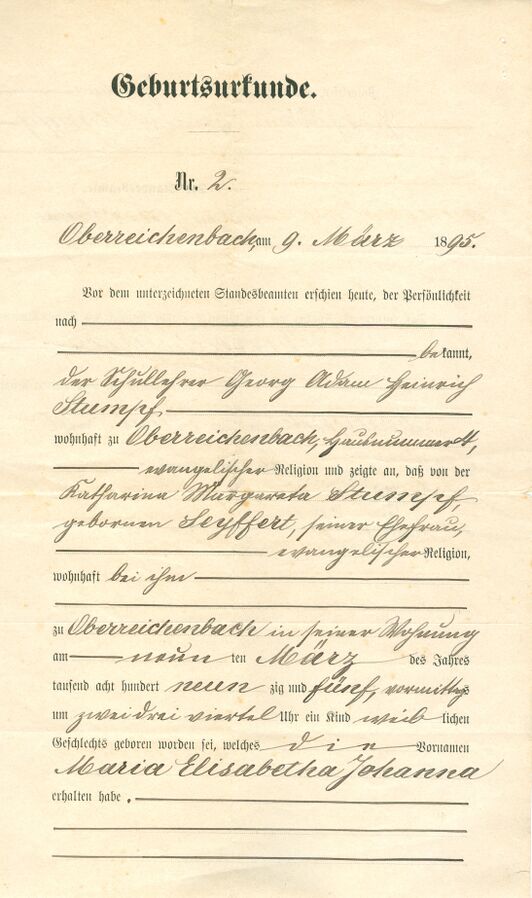 Geburtsurkunde.
Nr. 2.
Oberreichenbach, am 9. März 1895.
Vor dem unterzeichneten Standesbeamten erschien heute, der Persönlichkeit
nach
bekannt,
der Schullehrer Georg Adam Heinrich
Stumpf
wohnhaft zu Oberreichenbach, Hausnummer 4,
evangelischer Religion und zeigte an, daß von der
Katharina Margareta Stumpf,
gebornen Seyffert, seiner Ehefrau,
evangelischer Religion,
wohnhaft bei ihm
zu Oberreichenbach in seiner Wohnung
am neun ten März des Jahres
tausend acht hundert neun zig und fünf, vormittags
um zweidrei viertel Uhr ein Kind weib lichen
Geschlechts geboren worden sei, welches die Vornamen
Maria Elisabetha Johanna
erhalten habe.